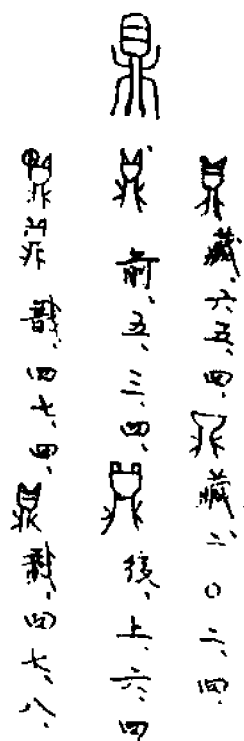 鼎
藏、六五、四、藏二、〇二、四、
前、五、三、四、後、上、六、四
戩、四七、四、戩、四七、八、